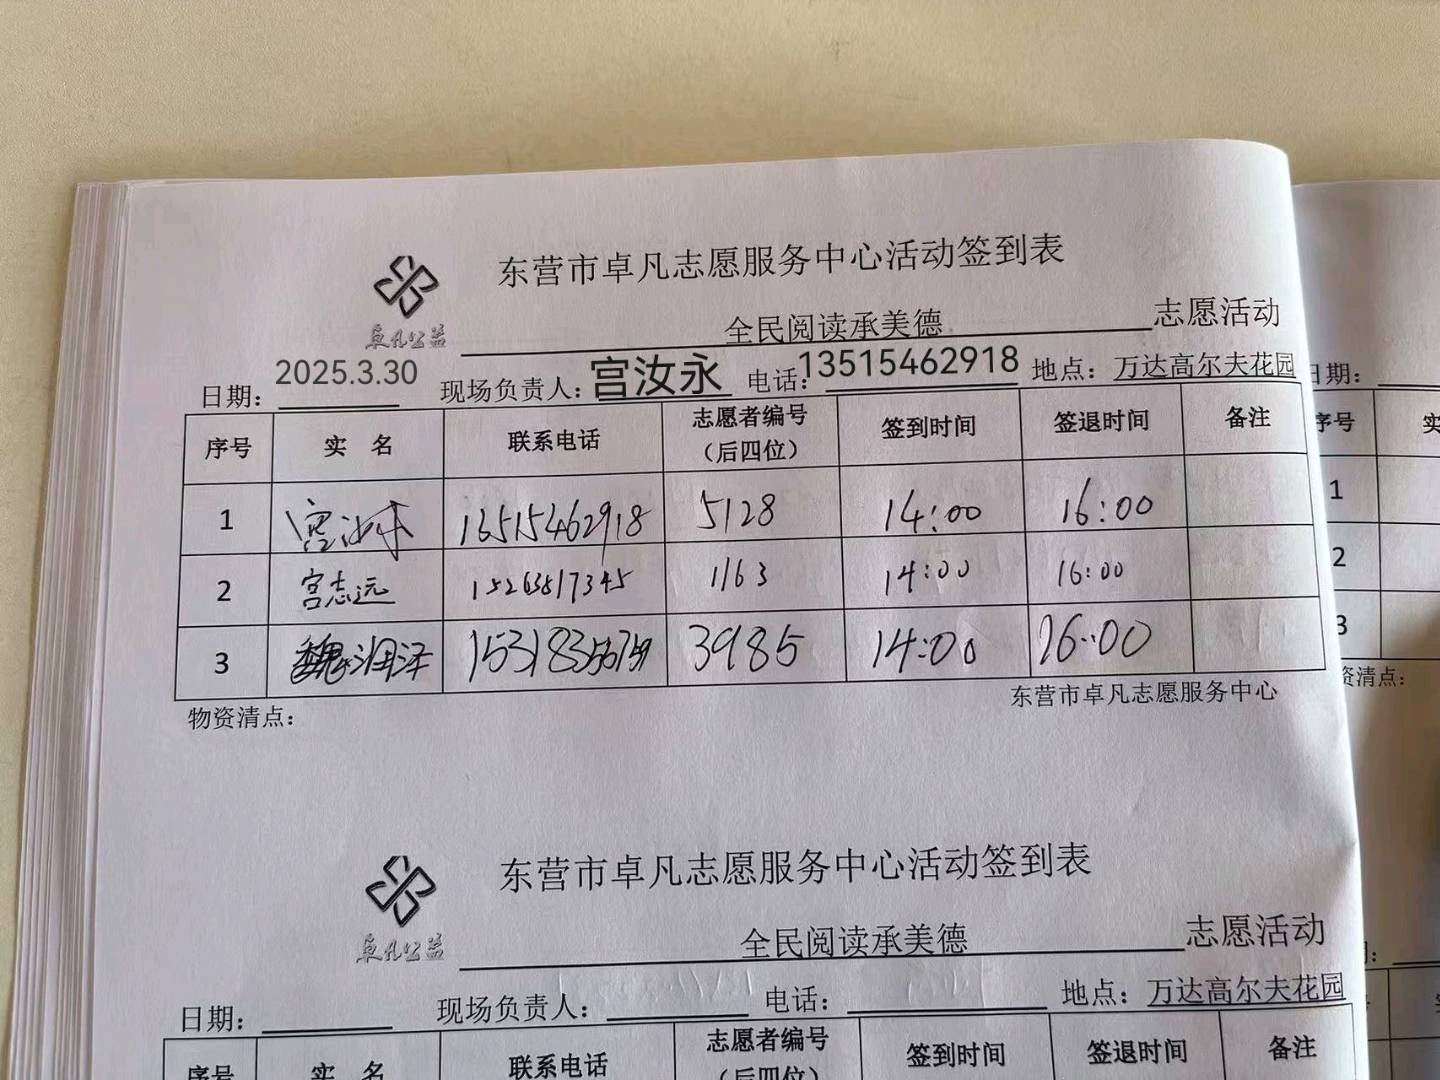 东营市卓凡志愿服务中心活动签到表
卓凡公益
全民阅读承美德 志愿活动
日期：2025.3.30 现场负责人：宫汝永 电话：13515462918 地点：万达高尔夫花园
序号 实 名 联系电话 志愿者编号（后四位） 签到时间 签退时间 备注
1 宫汝永 13515462918 5128 14:00 16:00
2 宫志远 15263817345 1163 14:00 16:00
3 魏润泽 3985 14:00 16:00
物资清点： 东营市卓凡志愿服务中心
东营市卓凡志愿服务中心活动签到表
卓凡公益
全民阅读承美德 志愿活动
日期： 现场负责人： 电话： 地点：万达高尔夫花园
序号 实 名 联系电话 志愿者编号（后四位） 签到时间 签退时间 备注
日期：
序号 实
1
2
3
资清点：